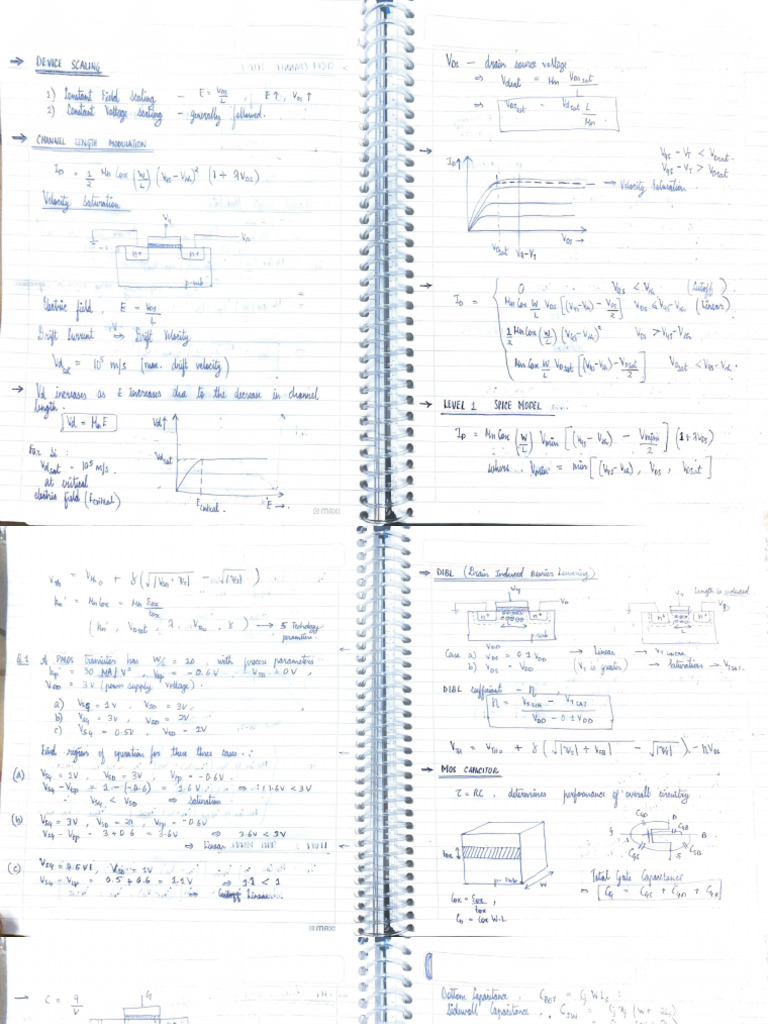 → DEVICE SCALING
1) Constant Field scaling - E = VDS/L E↑, VDS↑
2) Constant Voltage scaling - generally followed.
→ CHANNEL LENGTH MODULATION
ID = 1/2 Mn Cox (W/L) (VGS - Vth)² (1 + λVDS)
Velocity Saturation
VG
VD
n+ n+
p-sub
Electric field, E = VDS/L
Drift Current ⇔ Drift Velocity
Vdsat = 10⁵ m/s (max. drift velocity)
→ Vd increases as E increases due to the decrease in channel
length.
Vd = MnE
For Si:
Vdsat = 10⁵ m/s.
at critical
electric field (Ecritical)
Vd↑
Vdsat
Ecritical
E →
VDS - drain source voltage
⇒ Vdsat = Mn VDSsat/L
⇒ VDSsat = Vdsat L/Mn
→ ID↑
VGS - VT < VDsat.
VGS - VT > VDsat
→ Velocity Saturation
VDsat VG-VT VDS →
→ ID =
0 VGS < Vth (Cutoff)
Mn Cox W/L VDS [(VGS-Vth) - VDS/2] VDS < VGS-Vth (Linear)
1/2 Mn Cox (W/L) (VGS-Vth)² VDS > VGS-Vth
Mn Cox W/L VDsat [(VGS-Vth) - VDsat/2] VDsat < VGS-Vth
→ LEVEL 1 SPICE MODEL
ID = Mn Cox (W/L) Vmin [(VGS - Vth) - Vmin/2] (1+λVDS)
where Vmin = min[(VGS-Vth), VDS, VDsat]
Vth = Vth0 + γ(
kn' = Mn Cox = Mn εox/tox
(kn', VDsat, λ, Vth0, γ) → 5 Technology
parameters
Q.1 A PMOS Transistor has W/L = 20, with process parameters
kp' = 30 MA/V², Vtp = -0.6V
VDD = 3V (power supply voltage).
a) VSG = 1V, VSD = 3V
b) VSG = 3V, VSD = 2V
c) VSG = 0.5V, VSD = 1V
Find region of operation for these three cases.
(a) VSG = 1V, VSD = 3V, Vtp = -0.6V.
VSG - Vtp = 1 - (-0.6) = 1.6V ⇒ 1.6V < 3V
⇒ saturation
(b) VSG = 3V, VSD = 2V, Vtp = -0.6V
3 + 0.6 = 3.6V ⇒ 3.6V < 3V
⇒ Linear
(c) VSG = 0.5V, VSD = 1V
0.5 + 0.6 = 1.1V ⇒ 1.1 < 1
→ DIBL (Drain Induced Barrier Lowering)
VG
VD
n+ n+
L
p-sub
Length is reduced
Case a) VDS = 0.1 VDD → Linear
b) VDS = VDD (VT is greater) → Saturation → VTSAT.
DIBL coefficient - η,
η = VTLIN - VTSAT / VDD - 0.1 VDD
→ MOS CAPACITOR
τ = RC, determines performance of overall circuitry
tox
W
Cox = εox/tox,
CG = Cox W.L
CGD D
CGB B
CGS S CSB
Total Gate Capacitance
⇒ CG = CGS + CGD + CGB
→ C = q/V
G
Bottom Capacitance, CBOT = Cj W LS
Sidewall Capacitance,